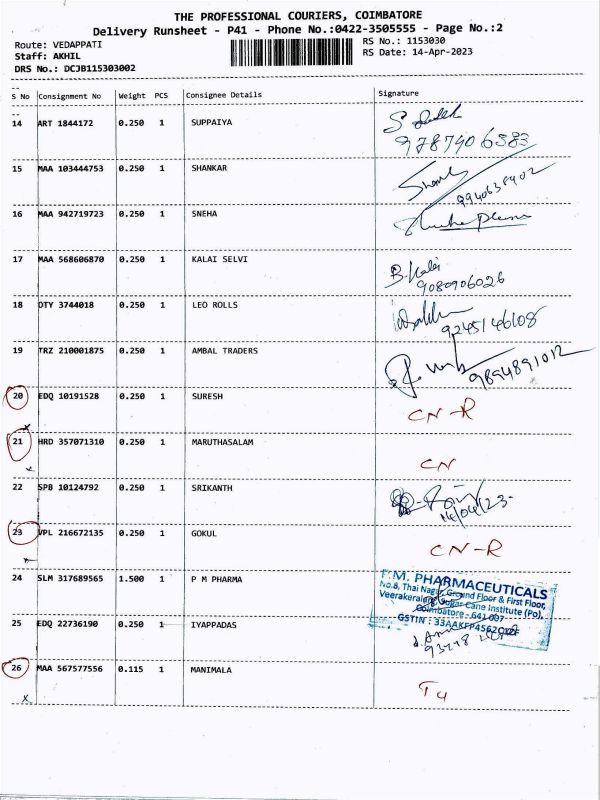 THE PROFESSIONAL COURIERS, COIMBATORE
Delivery Runsheet - P41 - Phone No.:0422-3505555 - Page No.:2
Route: VEDAPPATI RS No.: 1153030
Staff: AKHIL RS Date: 14-Apr-2023
DRS No.: DCJB115303002
S No Consignment No Weight PCS Consignee Details Signature
14 ART 1844172 0.250 1 SUPPAIYA
9787906383
15 MAA 103444753 0.250 1 SHANKAR
9940638902
16 MAA 942719723 0.250 1 SNEHA
17 MAA 568606870 0.250 1 KALAI SELVI B. Kalai
9080906026
18 DTY 3744018 0.250 1 LEO ROLLS
9245146608
19 TRZ 210001875 0.250 1 AMBAL TRADERS
9894891012
20 EDQ 10191528 0.250 1 SURESH CN-R
21 HRD 357071310 0.250 1 MARUTHASALAM CN
22 SPB 10124792 0.250 1 SRIKANTH
14/04/23-
23 VPL 216672135 0.250 1 GOKUL CN-R
24 SLM 317689565 1.500 1 P M PHARMA P.M. PHARMACEUTICALS
No.8, Thai Nagar, Ground Floor & First Floor,
Veerakeralam, Sugar Cane Institute (Po),
Coimbatore - 641 007
25 EDQ 22736190 0.250 1 IYAPPADAS GSTIN :
26 MAA 567577556 0.115 1 MANIMALA